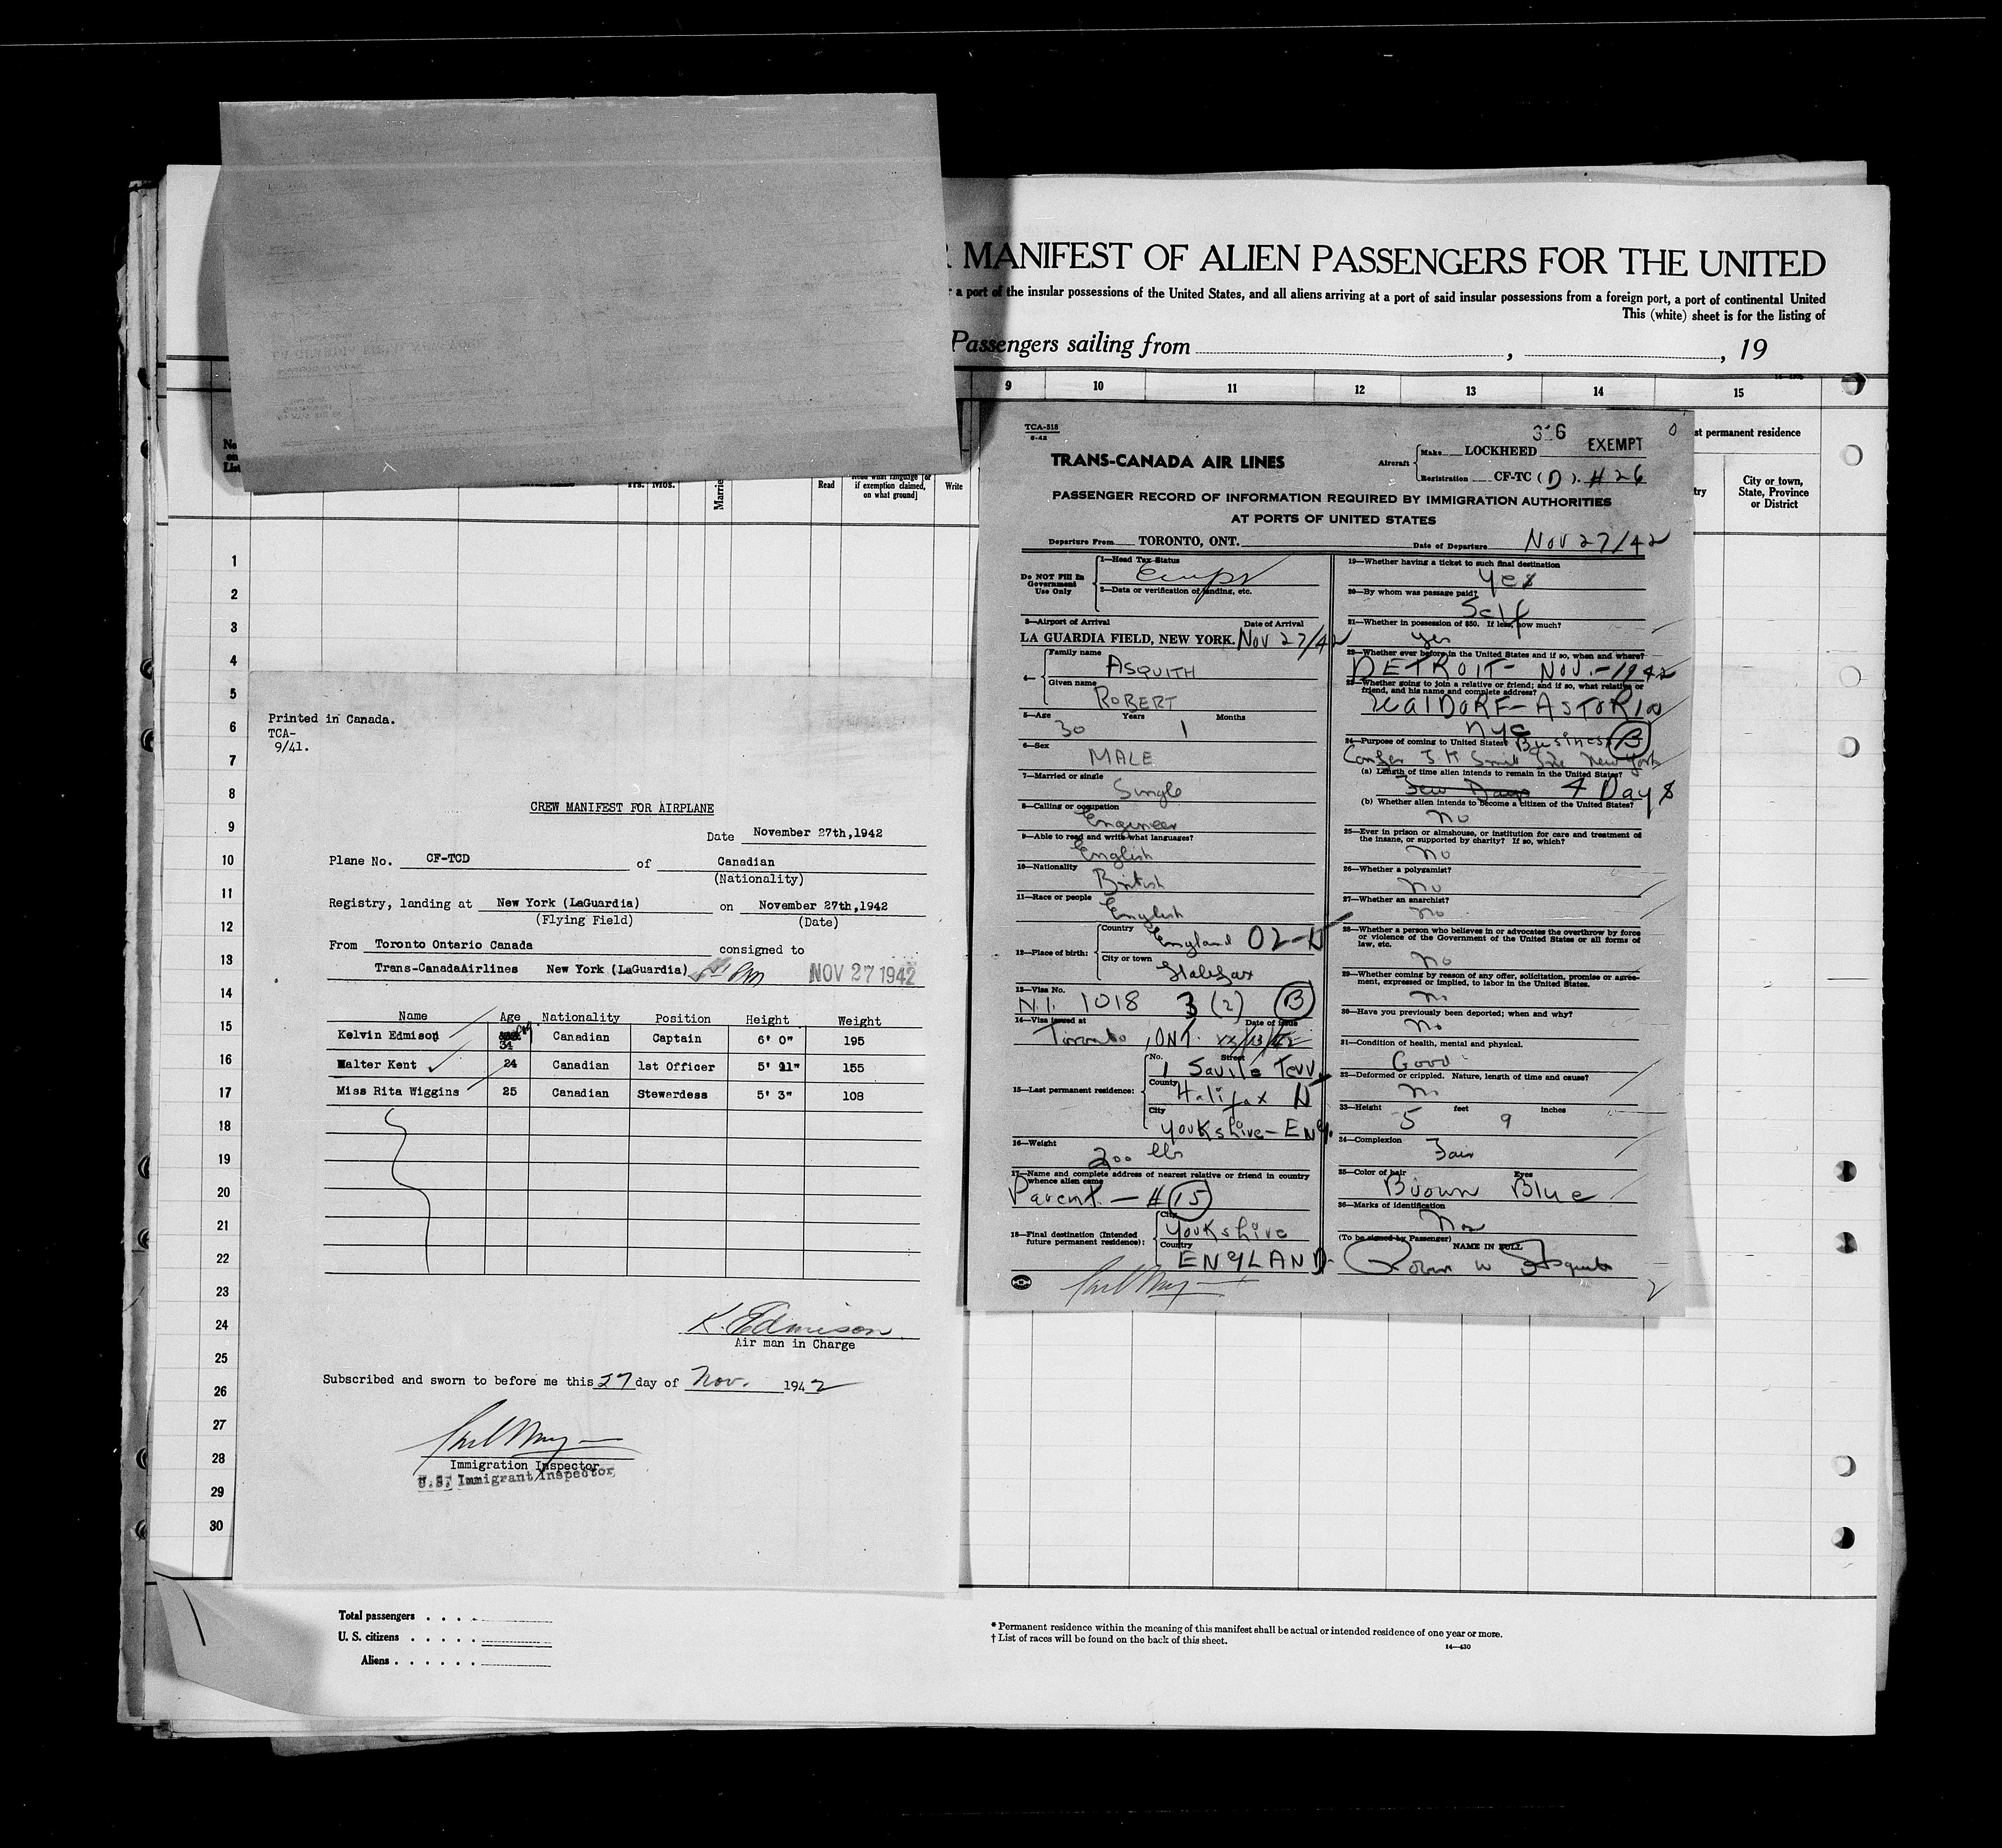 MANIFEST OF ALIEN PASSENGERS FOR THE UNITED
a port of the insular possessions of the United States, and all aliens arriving at a port of said insular possessions from a foreign port, a port of continental United
This (white) sheet is for the listing of
Passengers sailing from , , 19
9 10 11 12 13 14 15
st permanent residence
Read
if exemption claimed, on what ground]
Write
City or town, State, Province or District
1
2
3
4
5
6
7
8
9
10
11
12
13
14
15
16
17
18
19
20
21
22
23
24
25
26
27
28
29
30
Printed in Canada.
TCA-
9/41.
CREW MANIFEST FOR AIRPLANE
Date November 27th,1942
Plane No. CF-TCD of Canadian
(Nationality)
Registry, landing at New York (LaGuardia) on November 27th,1942
(Flying Field) (Date)
From Toronto Ontario Canada consigned to
Trans-CanadaAirlines New York (LaGuardia) PM NOV 27 1942
Name Age Nationality Position Height Weight
Kelvin Edmison 34 Canadian Captain 6' 0" 195
Walter Kent 24 Canadian 1st Officer 5' 11" 155
Miss Rita Wiggins 25 Canadian Stewardess 5' 3" 108
K. Edmison
Air man in Charge
Subscribed and sworn to before me this 27 day of Nov. 1942
Immigration Inspector
U.S. Immigrant Inspector
Total passengers . . . .
U. S. citizens . . . . .
Aliens . . . . . .
* Permanent residence within the meaning of this manifest shall be actual or intended residence of one year or more.
† List of races will be found on the back of this sheet.
14—430
TCA-318
6-42
316 EXEMPT
TRANS-CANADA AIR LINES
Aircraft Make LOCKHEED
Registration CF-TC (D). #26
PASSENGER RECORD OF INFORMATION REQUIRED BY IMMIGRATION AUTHORITIES
AT PORTS OF UNITED STATES
Departure From TORONTO, ONT. Date of Departure Nov 27/42
Do NOT Fill In Government Use Only
1—Head Tax Status
2—Data or verification of landing, etc.
3—Airport of Arrival Date of Arrival
LA GUARDIA FIELD, NEW YORK. Nov 27/42
4— Family name ASQUITH
Given name ROBERT
5—Age 30 Years 1 Months
6—Sex MALE
7—Married or single Single
8—Calling or occupation Engineer
9—Able to read and write what languages? English
10—Nationality British
11—Race or people English
12—Place of birth: Country England
City or town Halifax
13—Visa No. N.I. 1018 3 (2) (B)
14—Visa issued at Date of Issue
Toronto, ONT.
15—Last permanent residence: No. Street 1 Savile Terr.
County Halifax
City Yorkshire - Eng.
16—Weight 200 lbs
17—Name and complete address of nearest relative or friend in country whence alien came
Parent. — # (15)
18—Final destination (Intended future permanent residence): City Yorkshire
Country ENGLAND
19—Whether having a ticket to such final destination
yes
20—By whom was passage paid?
Self
21—Whether in possession of $50. If less, how much?
yes
22—Whether ever before in the United States and if so, when and where?
DETROIT - NOV. - 1942
23—Whether going to join a relative or friend; and if so, what relative or friend, and his name and complete address?
WalDORF-ASTORIa
NYC
24—Purpose of coming to United States? Business (B)
New York
(a) Length of time alien intends to remain in the United States?
Few Days 4 Days
(b) Whether alien intends to become a citizen of the United States?
No
25—Ever in prison or almshouse, or institution for care and treatment of the insane, or supported by charity? If so, which?
No
26—Whether a polygamist?
No
27—Whether an anarchist?
No
28—Whether a person who believes in or advocates the overthrow by force or violence of the Government of the United States or all forms of law, etc.
No
29—Whether coming by reason of any offer, solicitation, promise or agreement, expressed or implied, to labor in the United States.
No
30—Have you previously been deported; when and why?
No
31—Condition of health, mental and physical.
Good
32—Deformed or crippled. Nature, length of time and cause?
No
33—Height 5 feet 9 inches
34—Complexion Fair
35—Color of hair Brown Eyes Blue
36—Marks of identification
(To be signed by Passenger) NAME IN FULL
Robert W Asquith